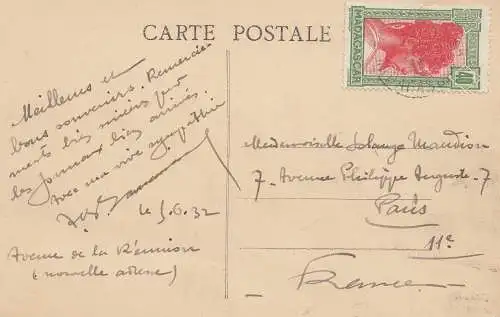 CARTE POSTALE
MADAGASCAR
Meilleurs et
bons souvenirs. Remercie-
ments très sincères pour
les journaux bien arrivés.
Avec ma vive sympathie
le 5.6.32
Avenue de la Réunion
(nouvelle adresse)
Mademoiselle Solange Maudion
7 - Avenue Philippe Auguste - 7
Paris
11e
France